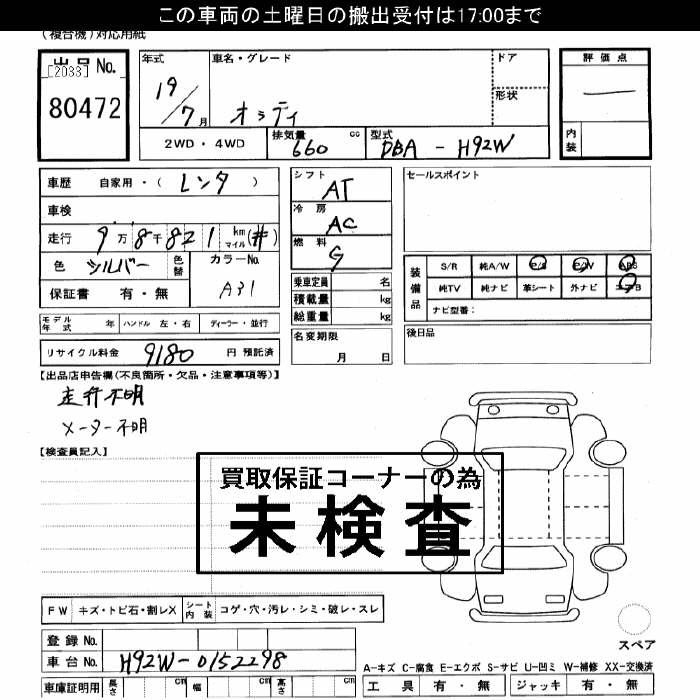 この車両の土曜日の搬出受付は17:00まで
(複合機)対応用紙
出品No.
[2033]
80472
年式
19/7月
車名・グレード
オッティ
ドア
形状
評価点
―
内装
2WD・4WD
排気量 660 cc
型式 DBA - H92W
車歴 自家用・(レンタ)
車検
走行 9万8千821 km マイル(#)
色 シルバー
色替
カラーNo. A31
保証書 有・無
シフト AT
冷房 AC
燃料 G
乗車定員 名
積載量 kg
総重量 kg
セールスポイント
装備品
S/R 純A/W P/S P/W ABS
純TV 純ナビ 革シート 外ナビ エアB
ナビ型番:
モデル年式 年 ハンドル 左・右 ディーラー・並行
名変期限
月 日
後日品
リサイクル料金 9180 円 預託済
【出品店申告欄(不良箇所・欠品・注意事項等)】
走行不明
メーター不明
【検査員記入】
買取保証コーナーの為
未検査
FW キズ・トビ石・割レX シート内装 コゲ・穴・汚レ・シミ・破レ・スレ
登録No.
車台No. H92W-0152298
スペア
A-キズ C-腐食 E-エクボ S-サビ U-凹ミ W-補修 XX-交換済
車庫証明用 長さ cm 幅 cm 高さ cm
工具 有・無 ジャッキ 有・無